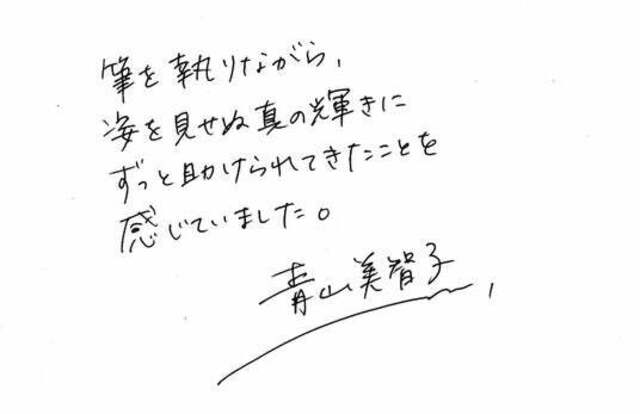 筆を執りながら、
姿を見せぬ真の輝きに
ずっと助けられてきたことを
感じていました。
青山美智子